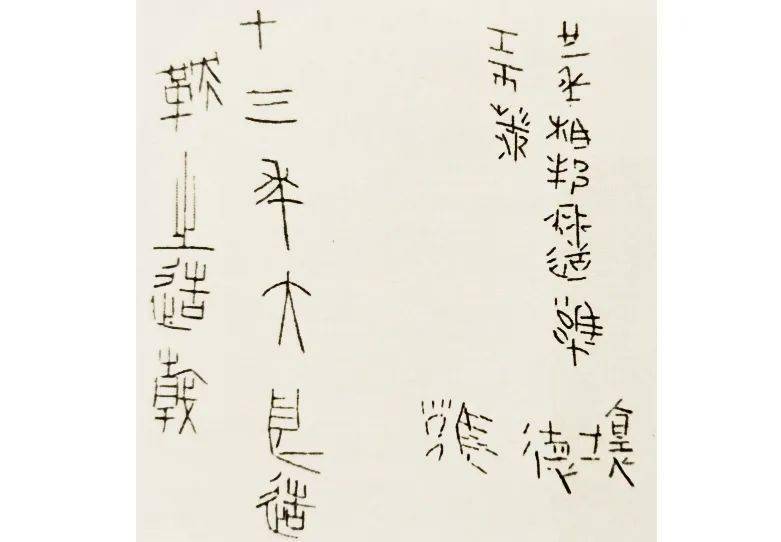 廿一年相邦冉造雍
工帀葉
壞德
雍
十三年大良造
鞅之造戟